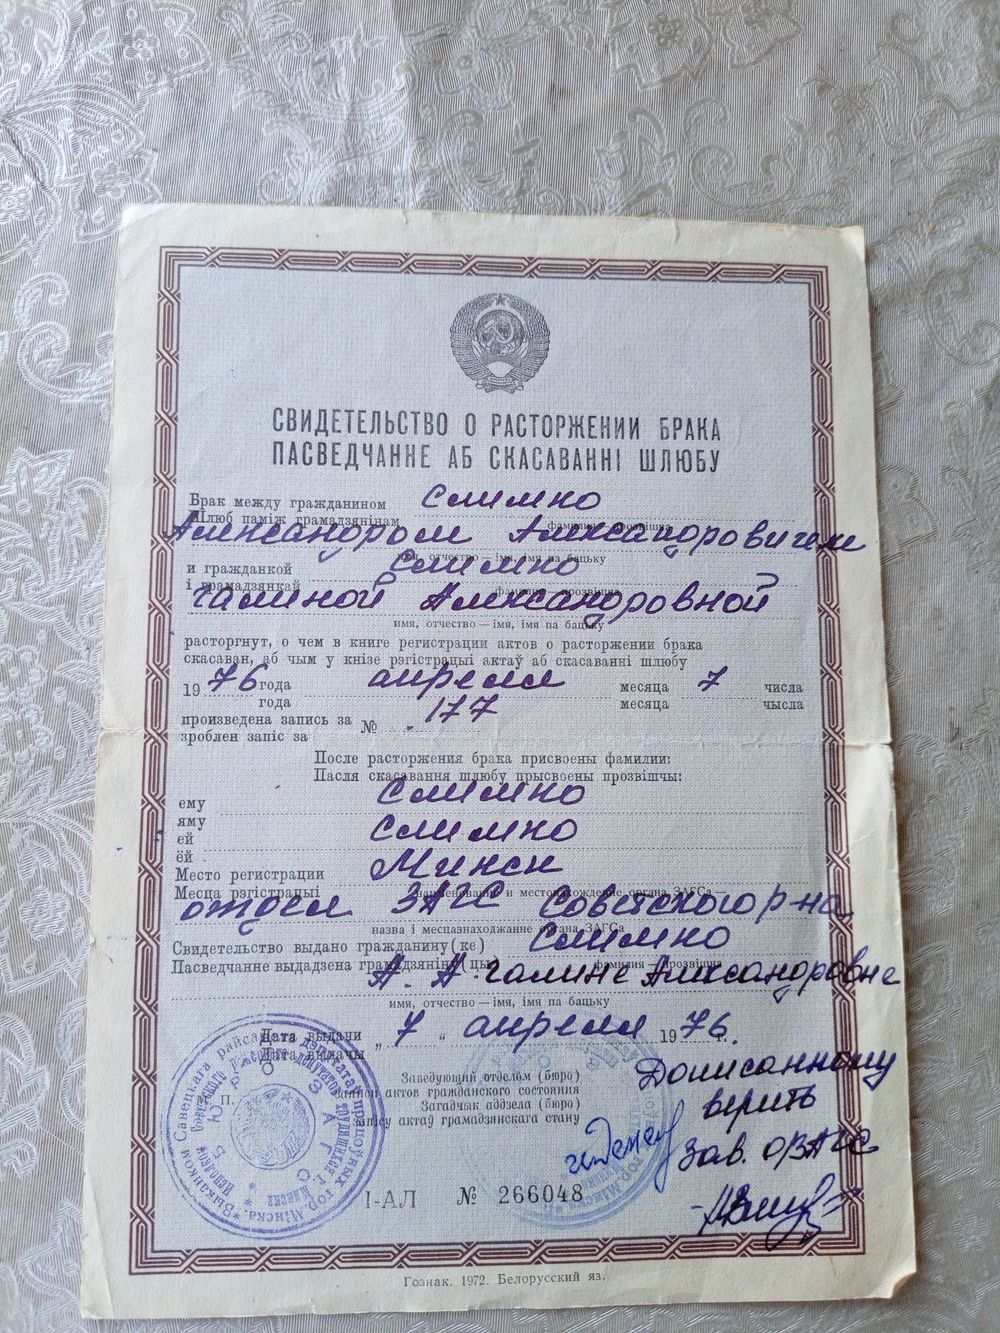 СВИДЕТЕЛЬСТВО О РАСТОРЖЕНИИ БРАКА
ПАСВЕДЧАННЕ АБ СКАСАВАННІ ШЛЮБУ
Брак между гражданином Слимко
Шлюб паміж грамадзянінам
фамилия — прозвішча
Александром Александровичем
имя, отчество — імя, імя па бацьку
и гражданкой Слимко
і грамадзянкай
фамилия — прозвішча
Галиной Александровной
имя, отчество — імя, імя па бацьку
расторгнут, о чем в книге регистрации актов о расторжении брака
скасаван, аб чым у кнізе рэгістрацыі актаў аб скасаванні шлюбу
1976 года апреля месяца 7 числа
года месяца чысла
произведена запись за № 177
зроблен запіс за
После расторжения брака присвоены фамилии:
Пасля скасавання шлюбу прысвоены прозвішчы:
ему Слимко
яму
ей Слимко
ёй
Место регистрации Минск
Месца рэгістрацыі
наименование и местонахождение органа ЗАГСа —
отдел ЗАГС Советского р-на
назва і месцазнаходжанне органа ЗАГСа
Свидетельство выдано гражданину(ке) Слимко
Пасведчанне выдадзена грамадзяніну(цы)
фамилия — прозвішча
А. А. Галине Александровне
имя, отчество — імя, імя па бацьку
Дата выдачи „7“ апреля 1976 г.
Дата выдачы
Дописанному
верить
Зав. ОЗАГС
Заведующий отделом (бюро)
записи актов гражданского состояния
Загадчык аддзела (бюро)
запісу актаў грамадзянскага стану
М. П.
І-АЛ № 266048
Гознак. 1972. Белорусский яз.